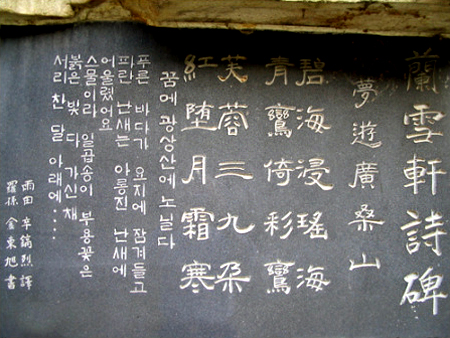 蘭雪軒詩碑
夢遊廣桑山
碧海浸瑤海
青鸞倚彩鸞
芙蓉三九朵
紅堕月霜寒
꿈에 광상산에 노닐다
푸른 바다가 요지에 잠겨들고
파란 난새는 아롱진 난새에
어울렸어요
스물이라 일곱송이 부용꽃은
붉은 빛 다 가신 채
서리 찬 달 아래에····
雨田 辛鎬烈 譯
羅孫 金東旭 書